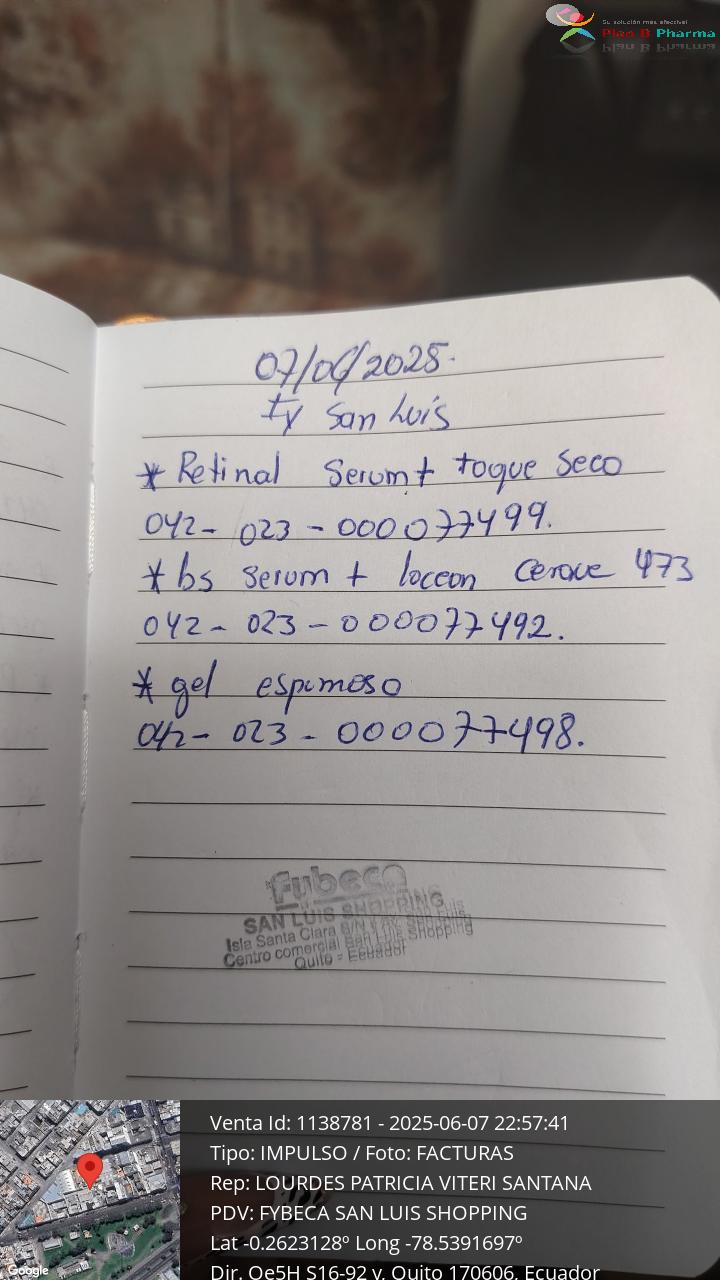 Su solución más efectiva!
Plan B Pharma
07/06/2025.
Fy San Luis
* Retinal Serum + toque Seco
042- 023 - 000077499.
* bs serum + locean Cerave 473
042 - 023 - 000077492.
* gel espumoso
042- 023 - 000077498.
Fybeca
SAN LUIS SHOPPING
Isla Santa Clara S/N y Av. San Luis
Centro comercial San Luis Shopping
Quito - Ecuador
Venta Id: 1138781 - 2025-06-07 22:57:41
Tipo: IMPULSO / Foto: FACTURAS
Rep: LOURDES PATRICIA VITERI SANTANA
PDV: FYBECA SAN LUIS SHOPPING
Lat -0.2623128º Long -78.5391697º
Dir. Oe5H S16-92 y, Quito 170606, Ecuador
Google